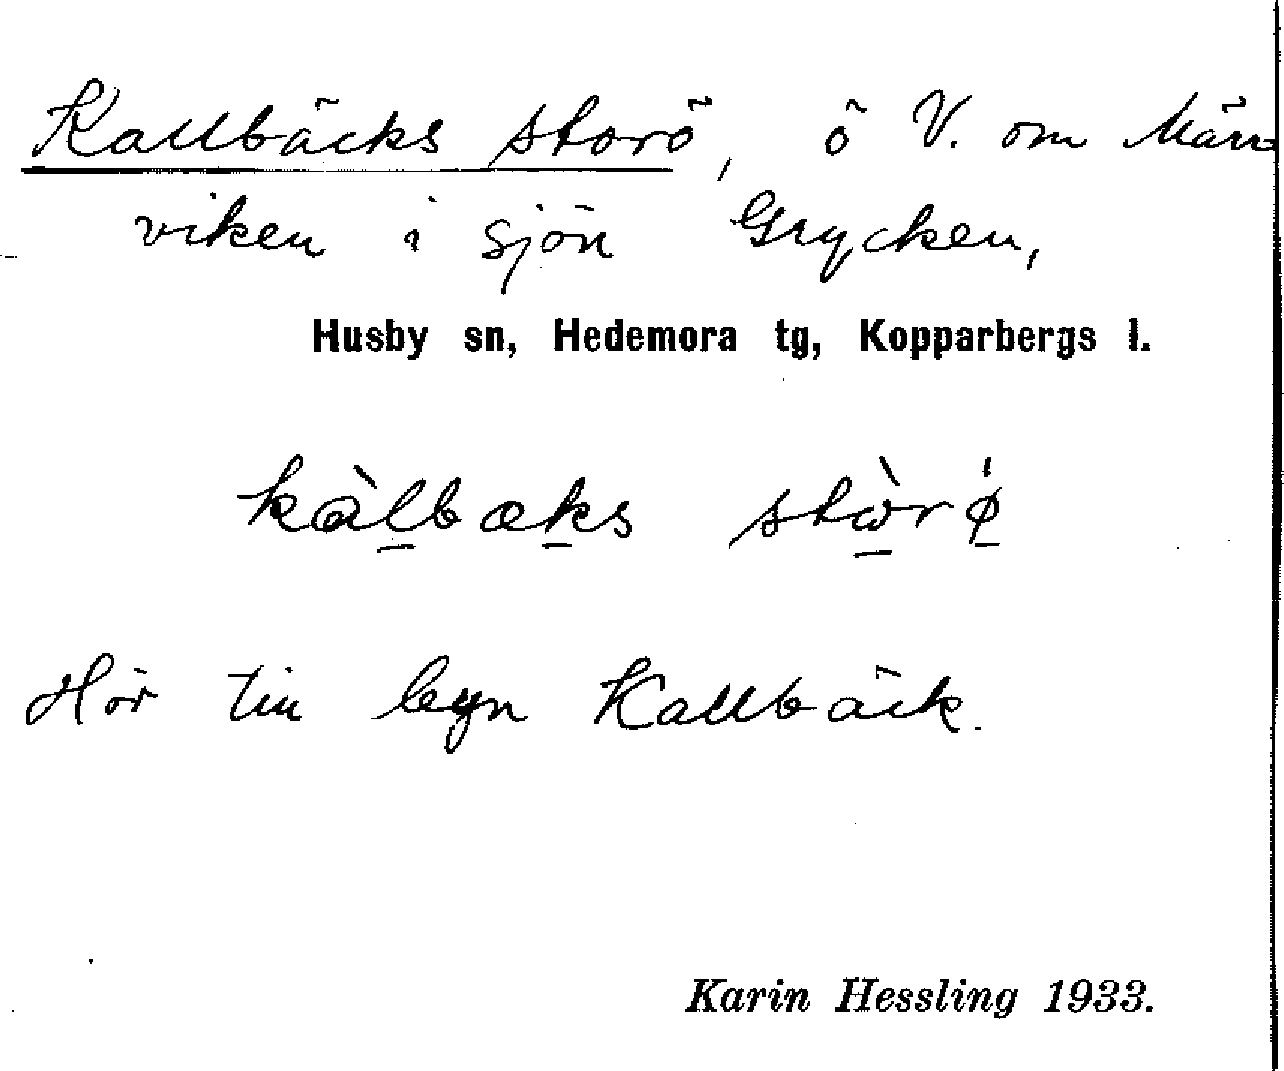 Kallbäcks storö, ö V. om Märr
viken i sjön Grycken,
Husby sn, Hedemora tg, Kopparbergs l.
kàlbæks stòrø̍
Hör till byn Kallbäck.
Karin Hessling 1933.